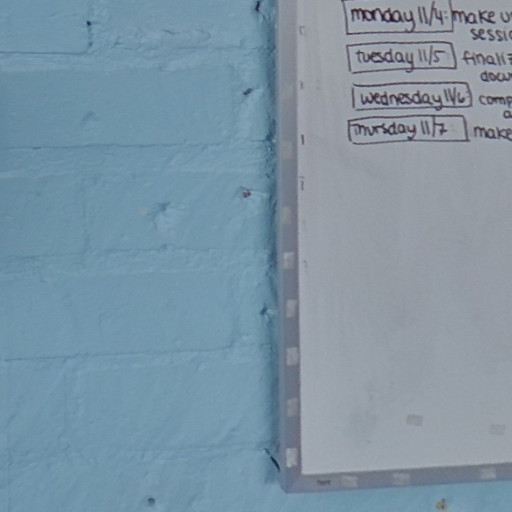 monday 11/4: make u
sessio
tuesday 11/5 finaliz
docu
wednesday 11/6 comp
a
thursday 11/7 make